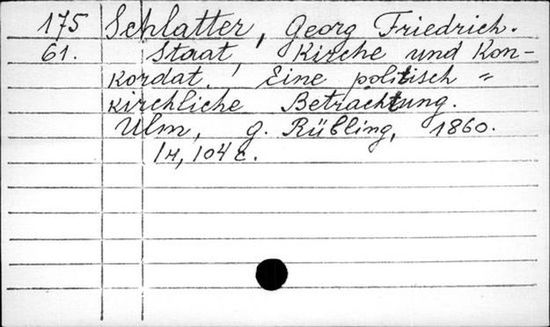 175 Schlatter, Georg Friedrich.
61. Staat, Kirche und Kon-
kordat. Eine politisch =
kirchliche Betrachtung.
Ulm, G. Rübling, 1860.
IH, 104 c.